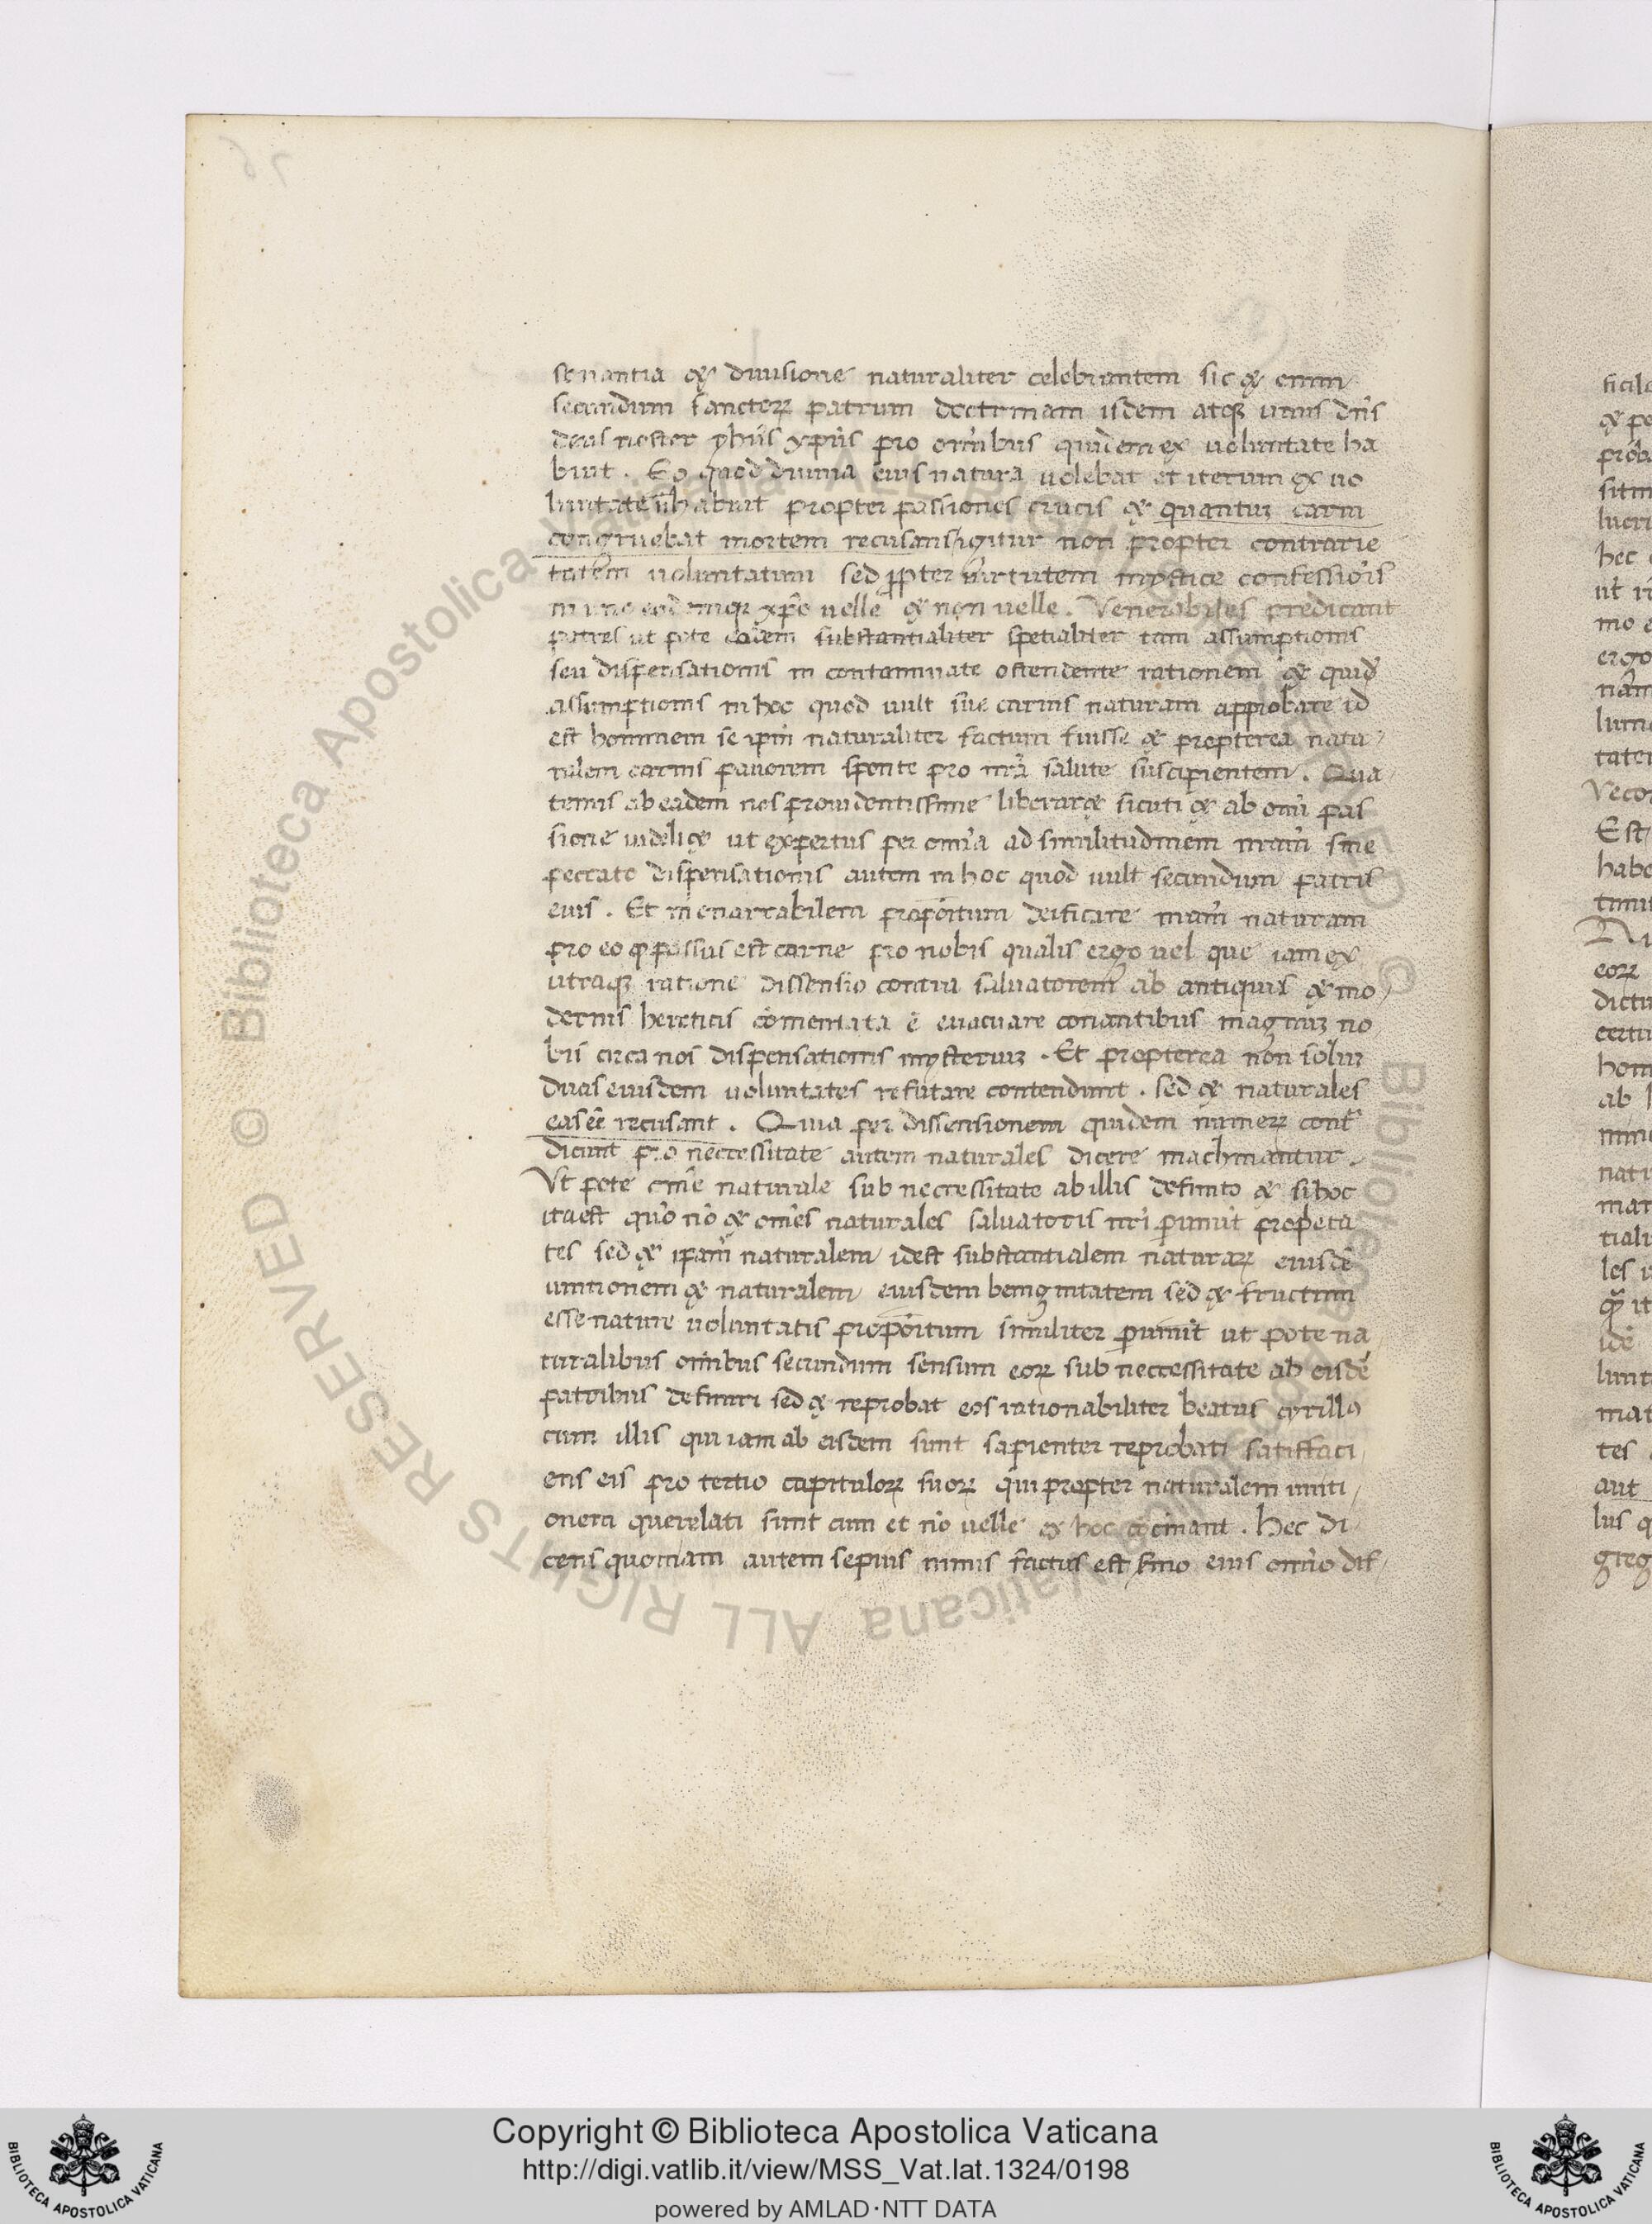 senantia & diuisione naturaliter celebrantem sic & enim
secundum sanctorꝝ patrum doctrinam isdem atqꝫ unus dn̄s
deus noster yhūs xpūs pro om̄ibus quidem ex uoluntate ha
buit . Eo quod diuina eius natura uolebat et iterum ex uo
luntate n̄ habuit propter passiones crucis & quantuꝫ carni
congruebat mortem recusans igitur non propter contrarie
tatem uoluntatum sed ꝓpter uirtutem mystice confessiōis
in uno eodemqꝫ xp̄o uelle & non uelle . Venerabiles predicant
patres ut pote eadem substantialiter spetialiter tam assumptionis
seu dispensationis in contaminate ostendente rationem & quidē
assumptionis in hoc quod uult sue carnis naturam approbare id
est hominem se ip̄m naturaliter factum fuisse & propterea natu
ralem carnis pauorem sponte pro nr̄a salute suscipientem . Qua
tinus ab eadem nos prouidentissime liberar& sicuti & ab om̄i pas
sione uidelic& ut expertus per om̄ia ad similitudinem nr̄am sine
peccato dispensationis autem in hoc quod uult secundum patris
eius . Et inenarrabilem propoitum deificare nr̄am naturam
pro eo ꝙ passus est carne pro nobis qualis ergo uel que iam ex
utraqꝫ ratione dissensio contra saluatorem ab antiquis & mo
dernis hereticis com̄entata ē euacuare conantibus magnuꝫ no
bis circa nos dispensationis mysteriuꝫ . Et propterea non soluꝫ
duas eiusdem uoluntates refutare contendunt . sed & naturales
eas eē recusant . Quia per dissensionem quidem numerꝝ cont
dicunt pro neccessitate autem naturales dicere machinantur .
Vt pote om̄e naturale sub neccessitate ab illis definito & si hoc
ita est quō nō & om̄es naturales saluatoris nr̄i perimit propeta
tes sed & ipam̄ naturalem idest substantialem naturaꝝ eiusdē
unitionem & naturalem eiusdem benignitatem sed & fructum
esse nature uoluntatis propoitum similiter perimit ut pote na
turalibus om̄ibus secundum sensum eoꝝ sub neccessitate ab eisdē
patribus definiri sed & reprobat eos rationabiliter beatus cyrillus
cum illis qui iam ab eisdem sunt sapienter reprobati satisfaci
ens eis pro tertio capituloꝝ suoꝝ qui propter naturalem uniti
onem querelati sunt cum et nō uelle ex hoc . Hec di
cens quoniam autem sepius nimis factus est sm̄o eius om̄io dif
Copyright © Biblioteca Apostolica Vaticana
http://digi.vatlib.it/view/MSS_Vat.lat.1324/0198
powered by AMLAD·NTT DATA